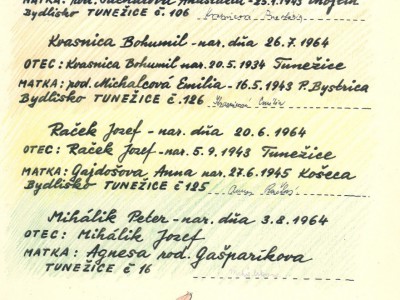 MATKA: rod. Anastázia - 25.1.1943
Bydlisko TUNEŽICE č. 106
Kvasnica Bohumil - nar. dňa 26.7.1964
OTEC: Kvasnica Bohumil nar. 20.5.1934 Tunežice
MATKA: rod. Michalcová Emilia - 16.5.1943 P. Bystrica
Bydlisko TUNEŽICE č. 126
Raček Jozef - nar. dňa 20.6.1964
OTEC: Raček Jozef - nar. 5.9.1943 Tunežice
MATKA: Gajdošova Anna nar. 27.6.1945 Košeca
Bydlisko TUNEŽICE č 125
Mihálik Peter - nar. dňa 3.8.1964
OTEC: Mihálik Jozef
MATKA: Agnesa rod. Gašparíkova
TUNEŽICE č 16